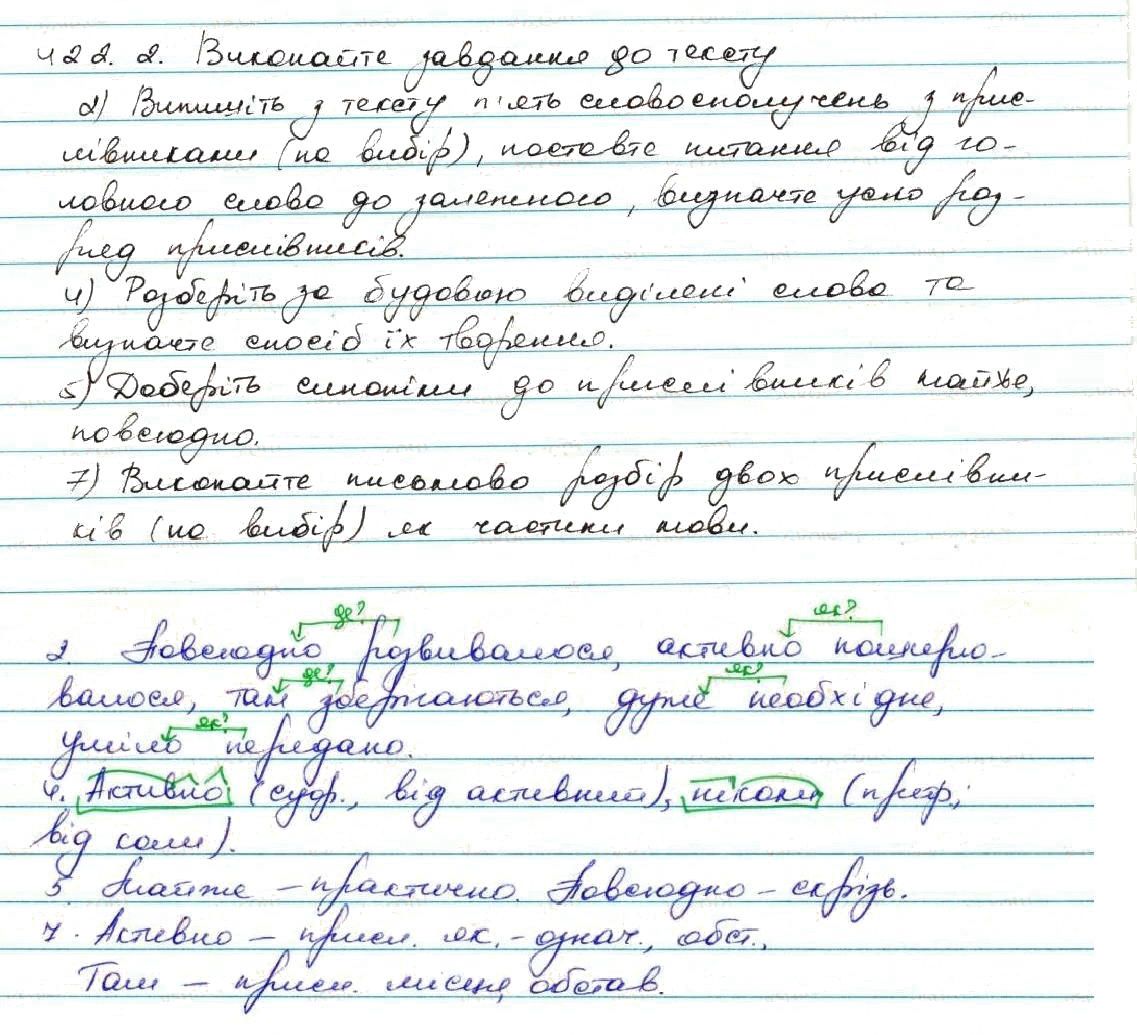 422. 2. Виконайте завдання до тексту
2) Випишіть з тексту п'ять словосполучень з прис-
лівниками (на вибір), поставте питання від го-
ловного слова до залежного, визначте усно роз-
ряд прислівників.
4) Розберіть за будовою виділені слова та
визначте спосіб їх творення.
5) Доберіть синоніми до прислівників майже,
повсюдно.
7) Виконайте письмово розбір двох прислівни-
ків (на вибір) як частини мови.
де? як?
2. Повсюдно розвивалося, активно поширю-
де? як?
валося, там зберігаються, дуже необхідне,
як?
уміло передано.
4. Активно (суф., від активний), ніколи (преф.,
від коли).
5. Майже – практично. Повсюдно – скрізь.
7. Активно – присл. як.-означ., обст.,
Там – присл. місця, обстав.